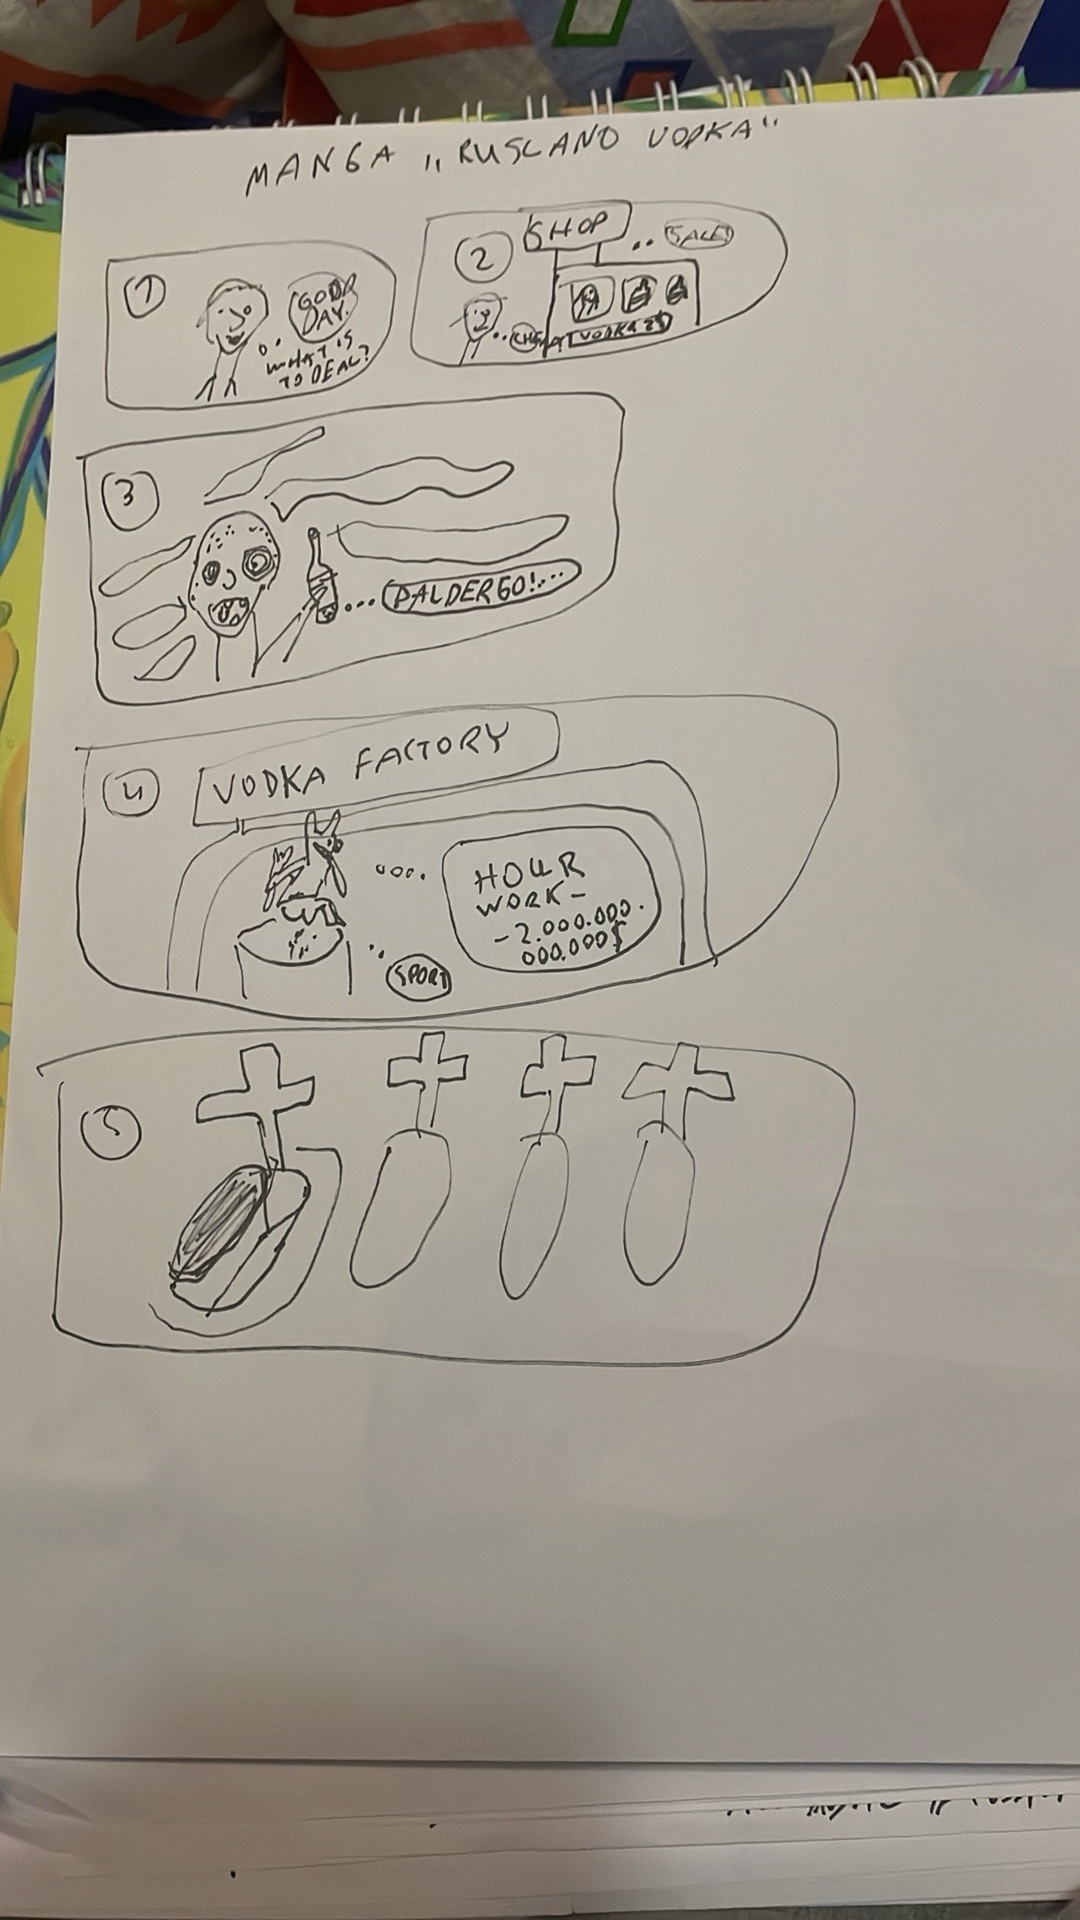 MANGA „RUSLANO VODKA“
1
GOOD
DAY.
WHAT IS
TO DEAL?
2
SHOP
SALE!
VODKA 2$
3
PALDERGO!...
4
VODKA FACTORY
HOUR
WORK -
- 2.000.000.
000.000$
SPORT
5